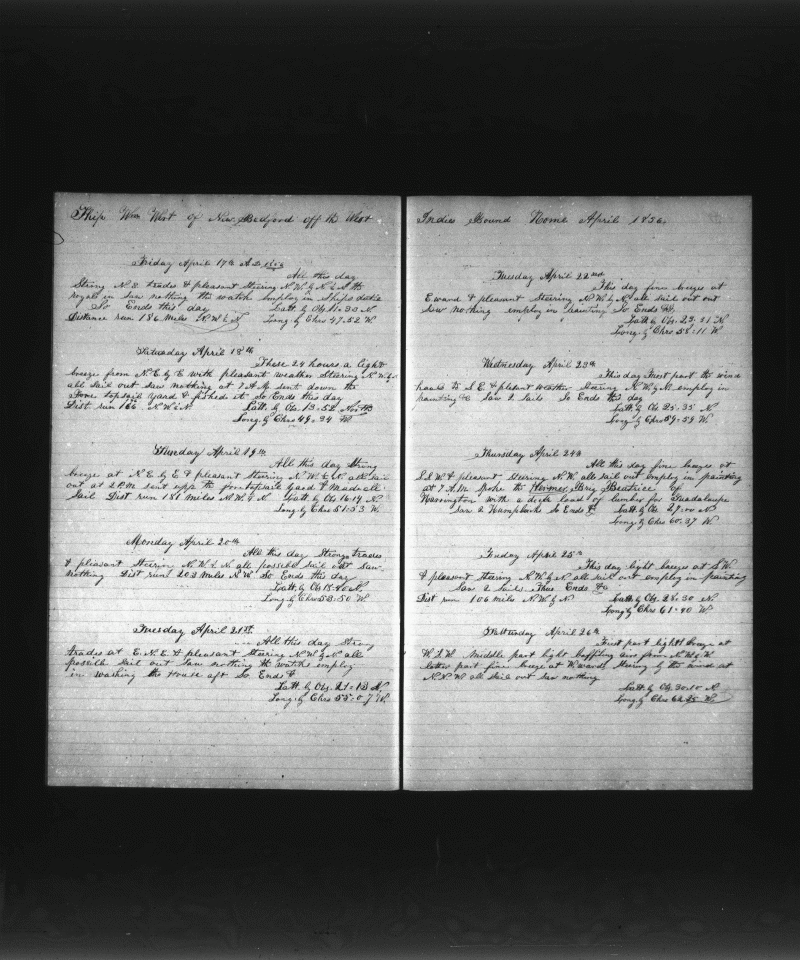 Ship Wm Wirt of New Bedford off the West
Friday April 17th A.D.
All this day
Strong N.E trades & pleasant Steering N.W. by N. & all the
royals in Saw nothing the watch employ in ships duties
So Ends this day Latt. by Obs. 11.30 N
Distance run 186 Miles N.W. by N Long. by Chro 47.52 W.
Saturday April 18th
These 24 hours a light
breeze from N.E. by E with pleasant weather Steering N.W. by N
all Sail out Saw nothing at 7 A.M. sent down the
Fore topsail yard & fished it So Ends this day
Dist run 166 N.W. by N Latt. by Ob. 13.52 North
Long. by Chro 49.34 W
Sunday April 19th
All this day Strong
breeze at N.E. by E & pleasant Steering N.W. by N all Sail
out at 2 P.M. sent upp the foretopsail Yard & Made all
Sail Dist run 181 miles N.W. by N Latt by Obs 16.14 N.
Long. by Chro 51.53 W.
Monday April 20th
All this day Strong trades
& pleasant Steering N.W. by N. all possible Sail out Saw
nothing Dist run 203 miles N.W. So Ends this day
Latt. by Obs 18.40 N.
Long. by Chro 53.50 W
Tuesday April 21st.
All this day Strong
trades at E.N.E. & pleasant Steering N.W. by N all
possible Sail out Saw nothing the watch employ
in washing the house aft So Ends &
Latt. by Obs. 21.13 N
Long. by Chro 55.07 W.
Indies Bound Home April 1856.
Tuesday April 22nd
This day fine breeze at
Eward & pleasant Steering N.W. by N all sail out out
Saw nothing employ in painting So Ends &c
Latt. by Obs. 23.21 N
Long. by Chro 58.11 W.
Wednesday April 23th
This day First part the wind
hauls to S.E & plesent weather Steering N.W. by N. employ in
painting &c Saw 2 Sails So Ends this day
Latt. by Ob 25.35 N
Long. by Chro 59.59 W.
Thursday April 24th
All this day fine breeze at
S.S.W. & pleasant Steering N.W. all sail out employ in painting
at 7 A.M. Spoke the Herma. Brig Beatrice of
Harrington with a deck load of lumber for Guadaloupe
Saw 2 Humpbacks So Ends & Latt. by Ob. 27.00 N
Long by Chro 60.37 W.
Friday April 25th
This day light breeze at S.W.
& pleasant Steering N.W. by N all sail out employ in painting
Saw 2 Sails Thus Ends &c
Dist run 106 miles N.W. by N Latt by Ob. 28.30 N.
Long by Chro 61.40 W.
Satturday April 26th
First part light breeze at
W.S.W. Middle part light baffling airs from N.W. by W
latter part fine breeze at Wward Steering by the wind at
N.N.W all Sail out saw nothing
Latt. by Ob. 30.10 N
Long. by Chro 62.25 W.